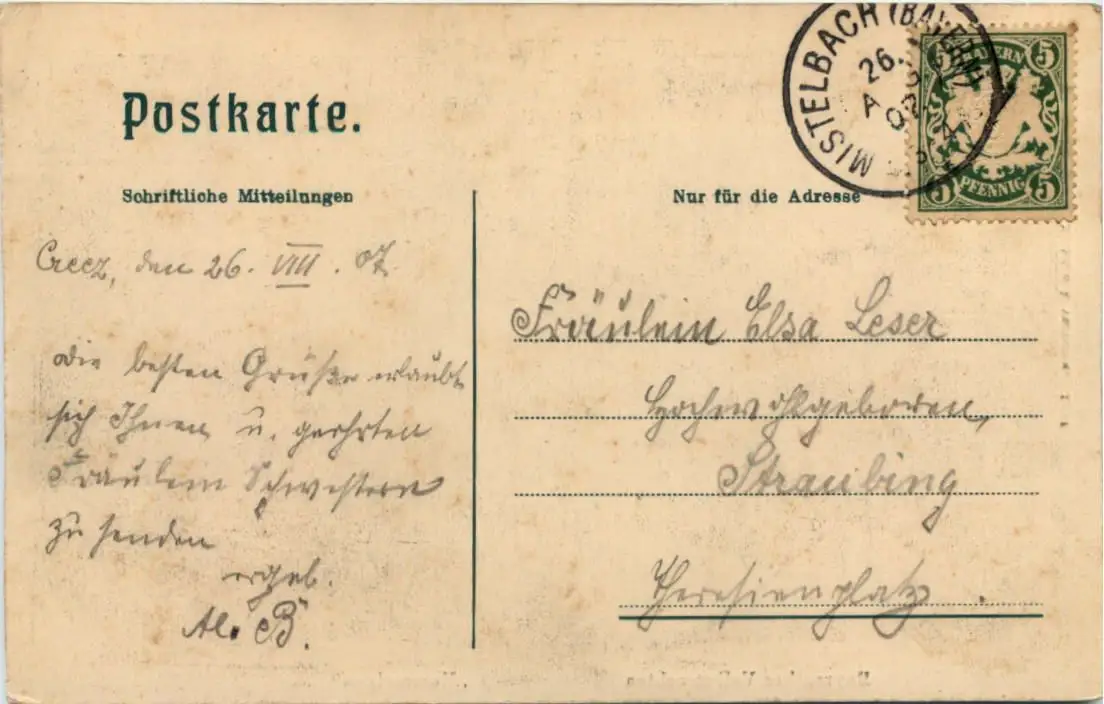 Postkarte.
MISTELBACH (BAYERN)
26.
BAYERN
5 5
PFENNIG
5 5
Schriftliche Mitteilungen
Nur für die Adresse
Creez, den 26. VIII. 07.
Die besten Grüße erlaubt
sich Ihnen u. geehrten
Fräulein Schwestern
zu senden
ergeb.
Al. B.
Fräulein Elsa Leser
Hochwohlgeboren,
Straubing
Theresienplatz.